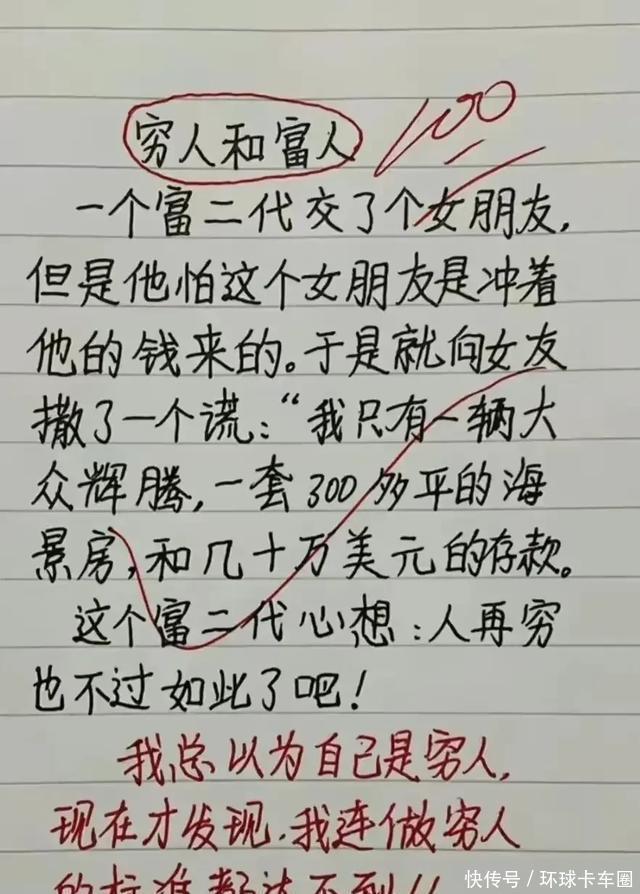 穷人和富人
100
一个富二代交了个女朋友,
但是他怕这个女朋友是冲着
他的钱来的。于是就向女友
撒了一个谎:“我只有一辆大
众辉腾,一套300多平的海
景房,和几十万美元的存款。
这个富二代心想:人再穷
也不过如此了吧!
我总以为自己是穷人,
现在才发现,我连做穷人
的标准都达不到!!
快传号/环球卡车圈